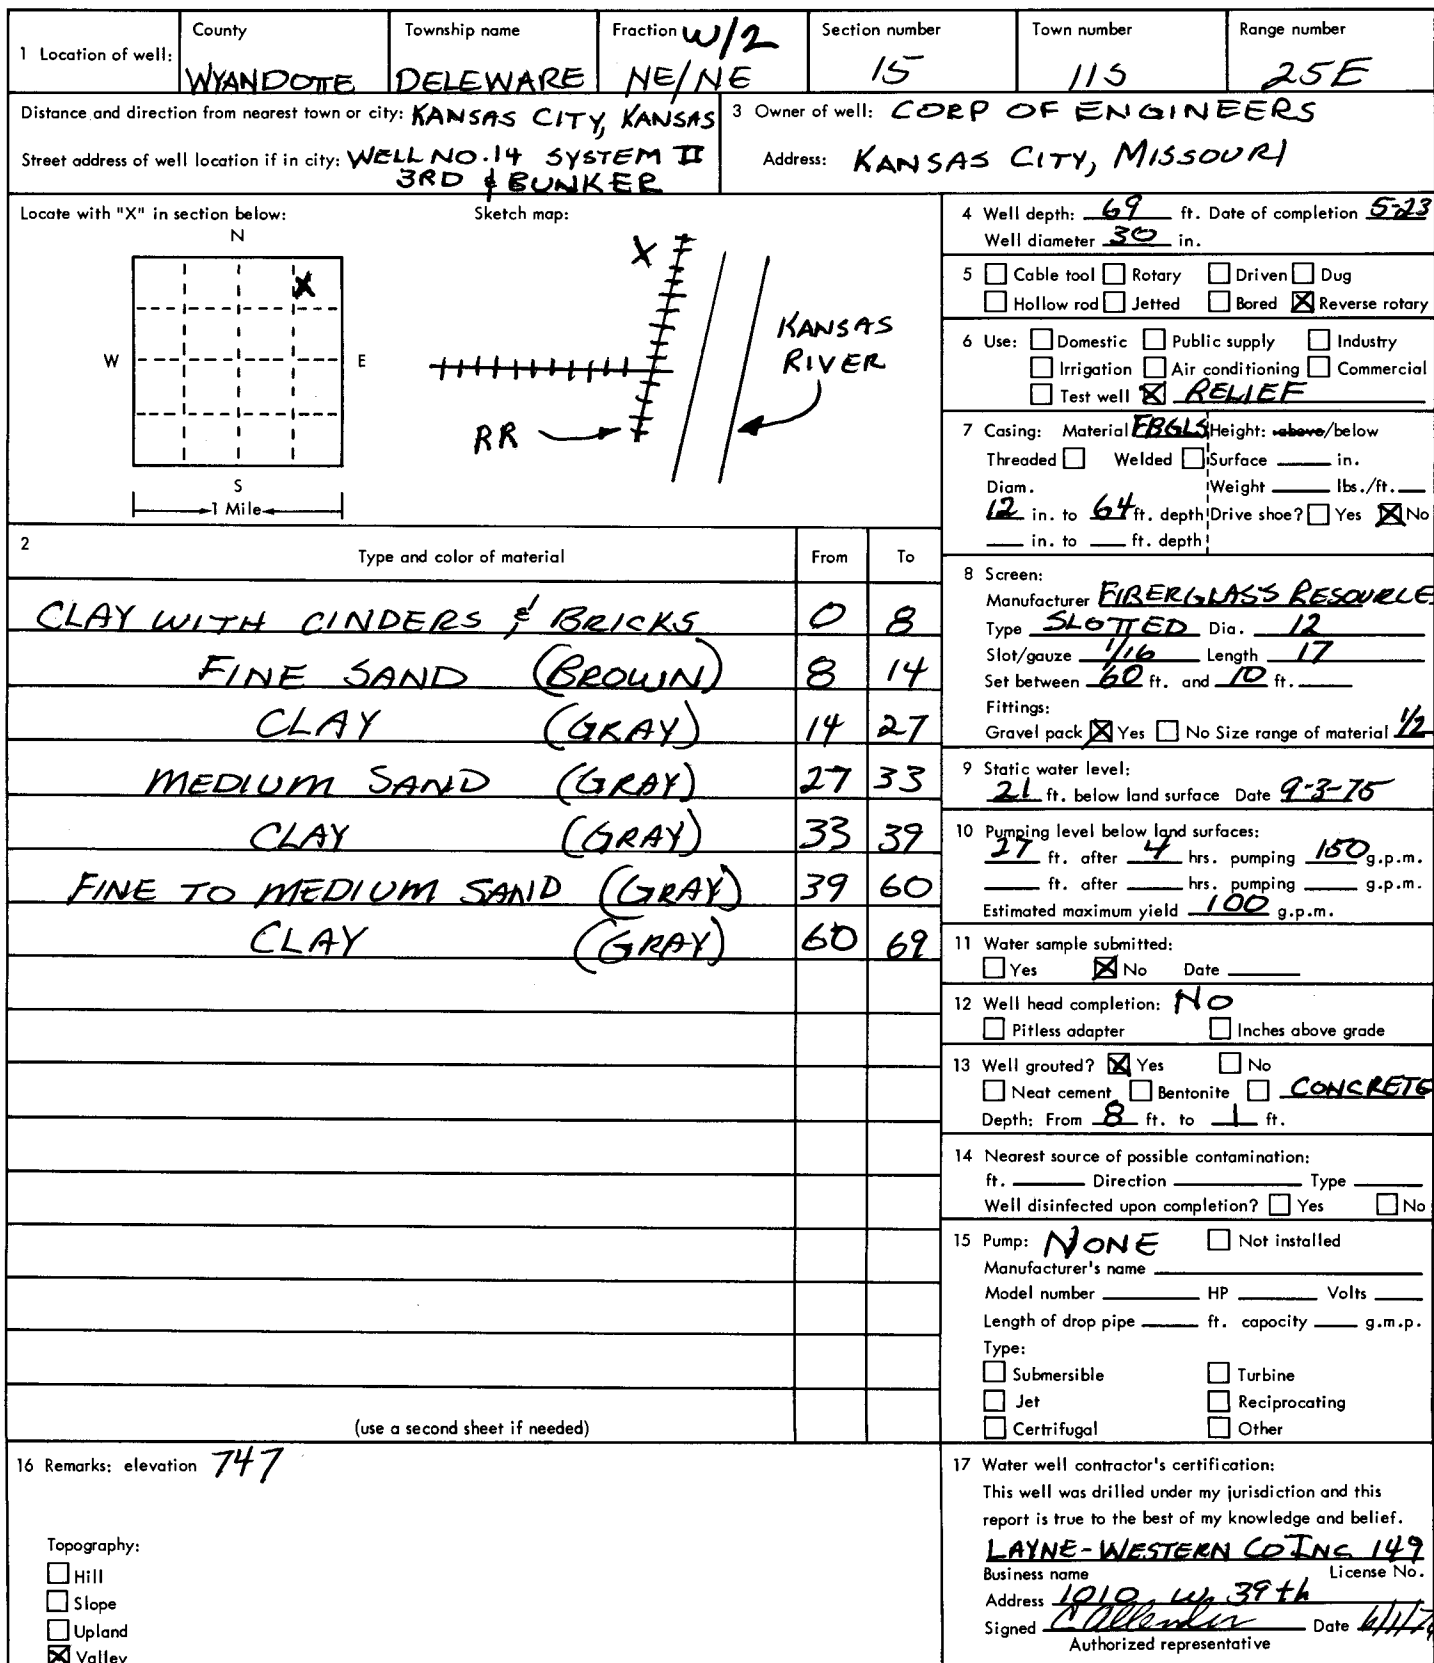 1 Location of well: County WYANDOTTE Township name DELEWARE Fraction W/2 NE/NE Section number 15 Town number 11S Range number 25E
Distance and direction from nearest town or city: KANSAS CITY, KANSAS
Street address of well location if in city: WELL NO. 14 SYSTEM II
3RD & BUNKER
3 Owner of well: CORP OF ENGINEERS
Address: KANSAS CITY, MISSOURI
Locate with "X" in section below:
N
W
E
S
1 Mile
X
Sketch map:
X
KANSAS
RIVER
RR
2 Type and color of material From To
CLAY WITH CINDERS & BRICKS 0 8
FINE SAND (BROWN) 8 14
CLAY (GRAY) 14 27
MEDIUM SAND (GRAY) 27 33
CLAY (GRAY) 33 39
FINE TO MEDIUM SAND (GRAY) 39 60
CLAY (GRAY) 60 69
(use a second sheet if needed)
4 Well depth: 69 ft. Date of completion 5-23
Well diameter 30 in.
5 Cable tool Rotary Driven Dug
Hollow rod Jetted Bored X Reverse rotary
6 Use: Domestic Public supply Industry
Irrigation Air conditioning Commercial
Test well X RELIEF
7 Casing: Material FBGLS Height: above/below
Threaded Welded Surface in.
Diam. Weight lbs./ft.
12 in. to 64 ft. depth Drive shoe? Yes X No
in. to ft. depth
8 Screen:
Manufacturer FIBERGLASS RESOURCE
Type SLOTTED Dia. 12
Slot/gauze 1/16 Length 17
Set between 60 ft. and 10 ft.
Fittings:
Gravel pack X Yes No Size range of material 1/2
9 Static water level:
21 ft. below land surface Date 9-3-75
10 Pumping level below land surfaces:
27 ft. after 4 hrs. pumping 150 g.p.m.
ft. after hrs. pumping g.p.m.
Estimated maximum yield 100 g.p.m.
11 Water sample submitted:
Yes X No Date
12 Well head completion: NO
Pitless adapter Inches above grade
13 Well grouted? X Yes No
Neat cement Bentonite CONCRETE
Depth: From 8 ft. to 1 ft.
14 Nearest source of possible contamination:
ft. Direction Type
Well disinfected upon completion? Yes No
15 Pump: NONE Not installed
Manufacturer's name
Model number HP Volts
Length of drop pipe ft. capocity g.m.p.
Type:
Submersible Turbine
Jet Reciprocating
Certrifugal Other
16 Remarks: elevation 747
Topography:
Hill
Slope
Upland
X Valley
17 Water well contractor's certification:
This well was drilled under my jurisdiction and this
report is true to the best of my knowledge and belief.
LAYNE-WESTERN CO INC 149
Business name License No.
Address 1010 W. 39th
Signed C Allender Date 6/1/7
Authorized representative